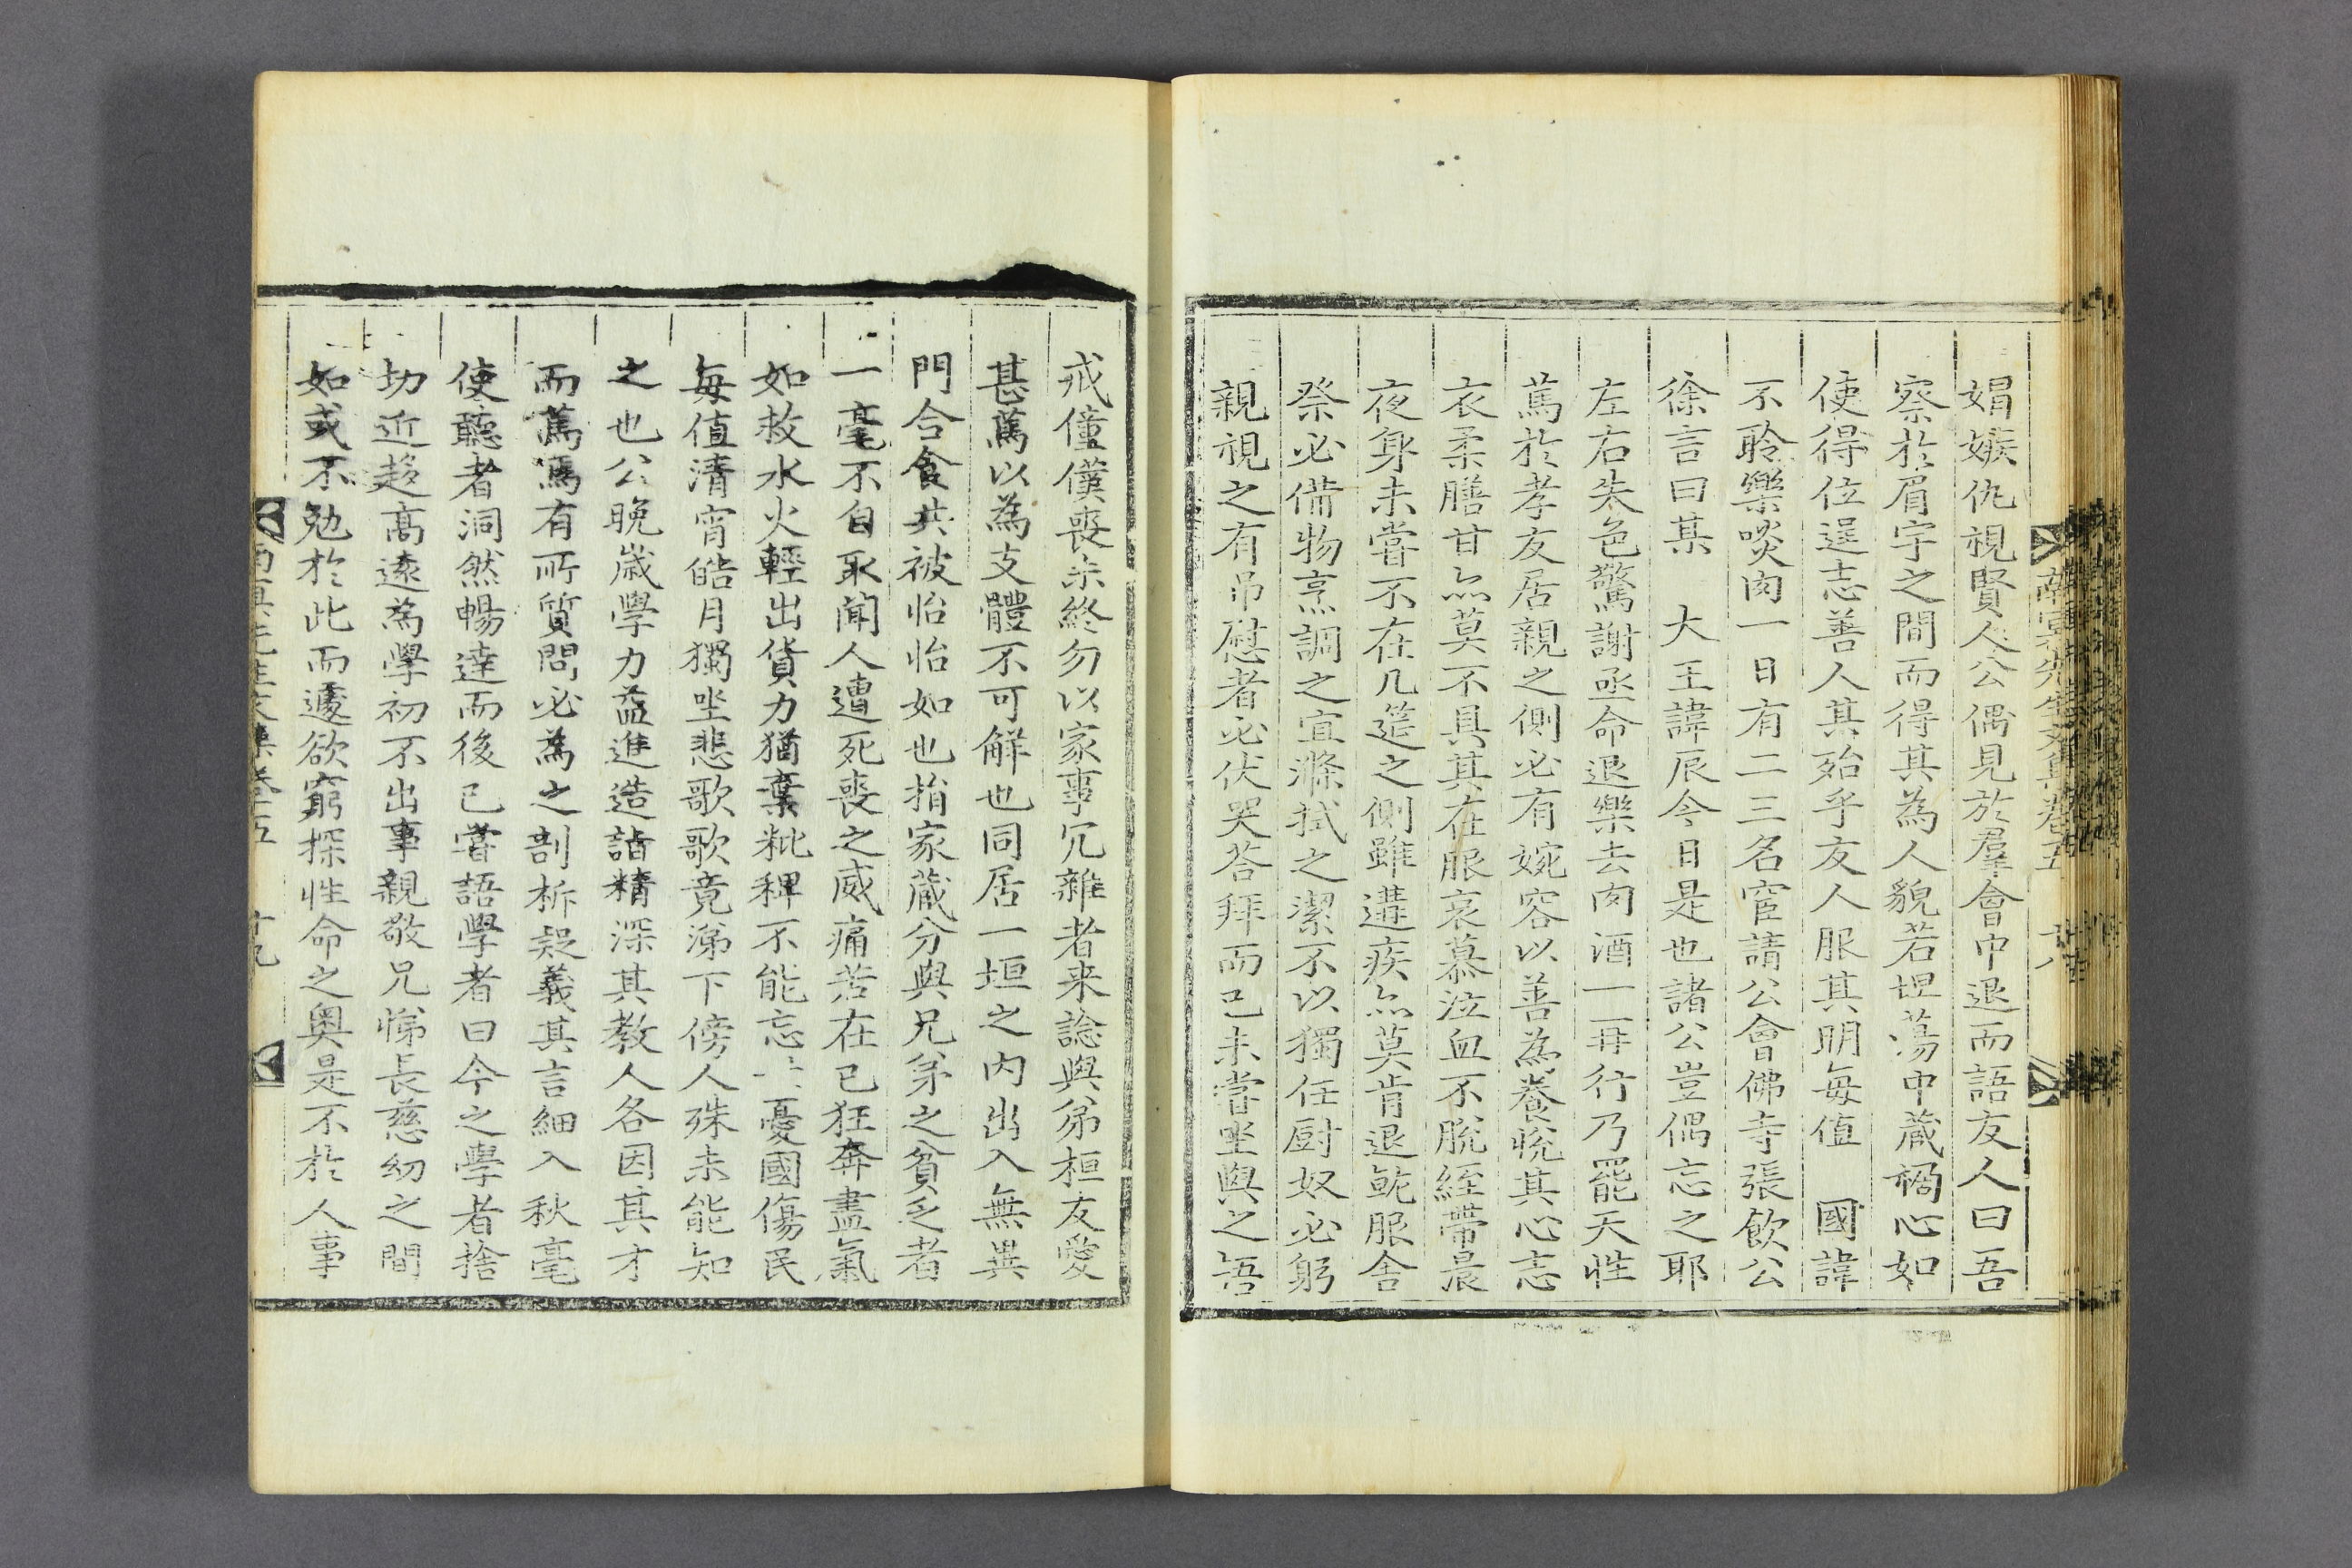 南冥先生文集卷五 十八
媢嫉仇視賢人公偶見於羣會中退而語友人曰吾
察於眉宇之間而得其為人貌若坦蕩中藏禍心如
使得位逞志善人其殆乎友人服其明每值 國諱
不聆樂啖肉一日有二三名宦請公會佛寺張飮公
徐言曰某 大王諱辰今日是也諸公豈偶忘之耶
左右失色驚謝亟命退樂去肉酒一再行乃罷天性
篤於孝友居親之側必有婉容以善為養悅其心志
衣柔膳甘亦莫不具其在服哀慕泣血不脫絰帶晨
夜身未嘗不在几筵之側雖遘疾亦莫肯退就服舍
祭必備物烹調之宜滌拭之潔不以獨任厨奴必躬
親視之有吊慰者必伏哭荅拜而已未嘗坐與之語
戒僮僕喪未終勿以家事冗雜者来諗與弟桓友愛
甚篤以為支體不可觧也同居一垣之内出入無異
門合食共被怡怡如也捐家藏分與兄弟之貧乏者
一毫不自取聞人遭死喪之威痛若在已狂奔盡氣
如救水火輕出貨力猶棄粃稗不能忘 憂國傷民
每值清宵皓月獨坐悲歌歌竟涕下傍人殊未能知
之也公晚歲學力益進造詣精深其教人各因其才
而篤焉有所質問必為之剖析疑義其言細入秋毫
使聽者洞然暢達而後已嘗語學者曰今之學者捨
切近趍高遠為學初不出事親敬兄悌長慈幼之間
如或不勉於此而遽欲窮探性命之奧是不於人事
南冥先生文集卷五 十九